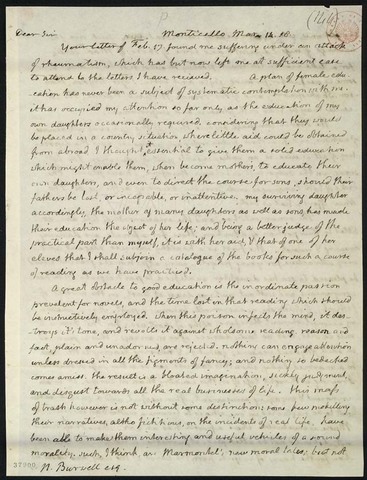 Dear Sir
Monticello Mar. 14. 18.
Your letter of Feb. 17. found me suffering under an attack
of rheumatism, which has but now left me at sufficient ease
to attend to the letters I have recieved. A plan of female edu-
cation has never been a subject of systematic contemplation with me.
it has occupied my attention so far only as the education of my
own daughters occasionally required. considering that they would
be placed in a country situation where little aid could be obtained
from abroad, I thought it essential to give them a solid education
which might enable them, when become mothers, to educate their
own daughters, and even to direct the course for sons, should their
fathers be lost, or incapable, or inattentive. my surviving daughter
accordingly, the mother of many daughters as well as sons, has made
their education the object of her life, and being a better judge of the
practical part than myself, it is with her aid & that of one of her
eleves that I shall subjoin a catalogue of the books for such a course
of reading as we have practised.
A great obstacle to good education is the inordinate passion
prevalent for novels, and the time lost in that reading which should
be instructively employed. when this poison infects the mind, it des-
troys it's tone, and revolts it against wholsome reading. reason and
fact, plain and unadorned, are rejected. nothing can engage attention
unless dressed in all the figments of fancy; and nothing so bedecked
comes amiss. the result is a bloated imagination, sickly judgment,
and disgust towards all the real businesses of life. this mass
of trash however is not without some distinction; some few modelling
their narratives, altho fictitious, on the incidents of real life, have
been able to make them interesting and useful vehicles of a sound
morality. such, I think, are Marmontel's new moral tales, but not
N. Burwell esq.
37900